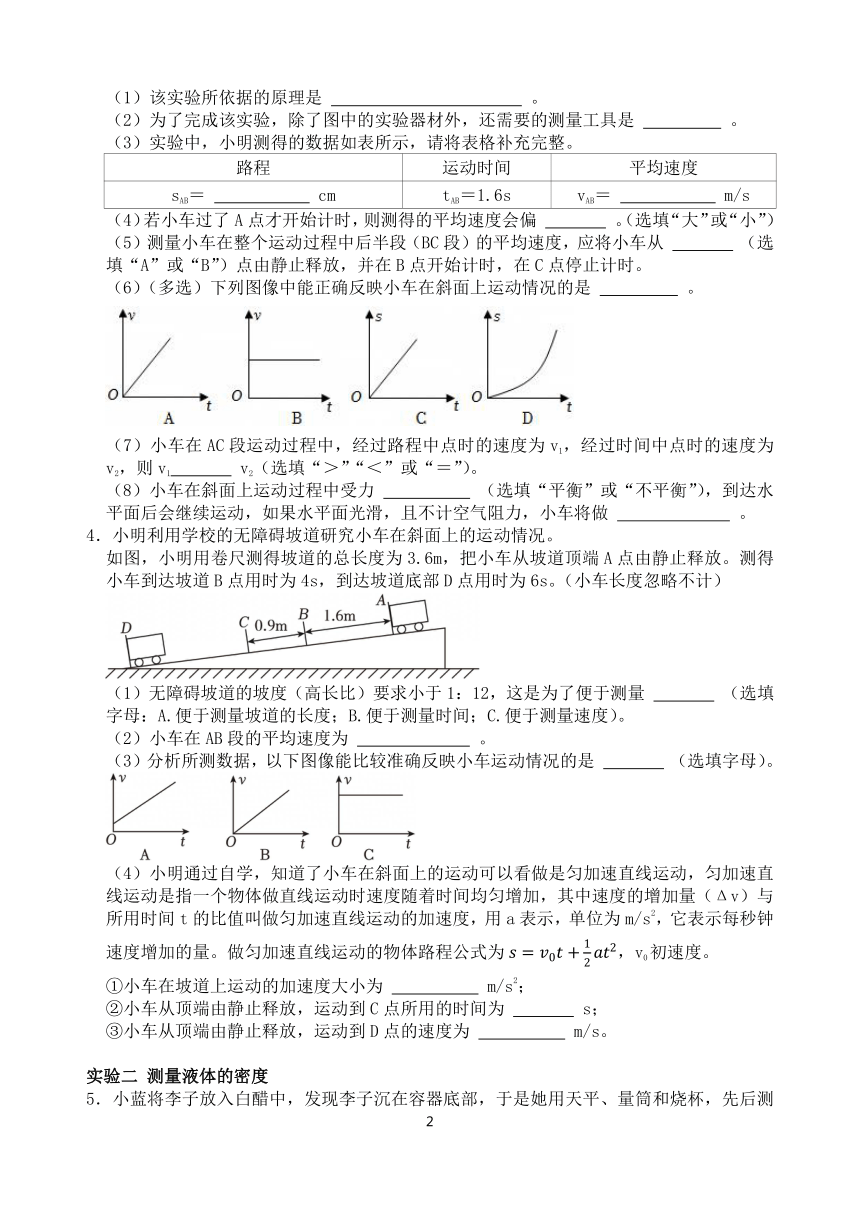 （1）该实验所依据的原理是 ____ 。
（2）为了完成该实验，除了图中的实验器材外，还需要的测量工具是 ____ 。
（3）实验中，小明测得的数据如表所示，请将表格补充完整。
路程 运动时间 平均速度
sAB＝ ____ cm tAB＝1.6s vAB＝ ____ m/s
（4）若小车过了 A 点才开始计时，则测得的平均速度会偏 ____ 。（选填“大”或“小”）
（5）测量小车在整个运动过程中后半段（BC 段）的平均速度，应将小车从 ____ （选
填“A”或“B”）点由静止释放，并在 B 点开始计时，在 C 点停止计时。
（6）（多选）下列图像中能正确反映小车在斜面上运动情况的是 ____ 。
v v s s
O t O t O t O t
A B C D
（7）小车在 AC 段运动过程中，经过路程中点时的速度为 v1，经过时间中点时的速度为
v2，则 v1____ v2（选填“＞”“＜”或“＝”）。
（8）小车在斜面上运动过程中受力 ____ （选填“平衡”或“不平衡”），到达水
平面后会继续运动，如果水平面光滑，且不计空气阻力，小车将做 ____ 。
4．小明利用学校的无障碍坡道研究小车在斜面上的运动情况。
如图，小明用卷尺测得坡道的总长度为 3.6m，把小车从坡道顶端 A 点由静止释放。测得
小车到达坡道 B 点用时为 4s，到达坡道底部 D 点用时为 6s。（小车长度忽略不计）
D C 0.9m B 1.6m A
（1）无障碍坡道的坡度（高长比）要求小于 1：12，这是为了便于测量 ____ （选填
字母：A.便于测量坡道的长度；B.便于测量时间；C.便于测量速度）。
（2）小车在 AB 段的平均速度为 ____ 。
（3）分析所测数据，以下图像能比较准确反映小车运动情况的是 ____ （选填字母）。
v v v
O t O t O t
A B C
（4）小明通过自学，知道了小车在斜面上的运动可以看做是匀加速直线运动，匀加速直
线运动是指一个物体做直线运动时速度随着时间均匀增加，其中速度的增加量（Δv）与
所用时间 t 的比值叫做匀加速直线运动的加速度，用 a 表示，单位为 m/s²，它表示每秒钟
速度增加的量。做匀加速直线运动的物体路程公式为 s = v₀t + ½at²，v₀初速度。
①小车在坡道上运动的加速度大小为 ____ m/s²；
②小车从顶端由静止释放，运动到 C 点所用的时间为 ____ s；
③小车从顶端由静止释放，运动到 D 点的速度为 ____ m/s。
实验二 测量液体的密度
5．小蓝将李子放入白醋中，发现李子沉在容器底部，于是她用天平、量筒和烧杯，先后测
2